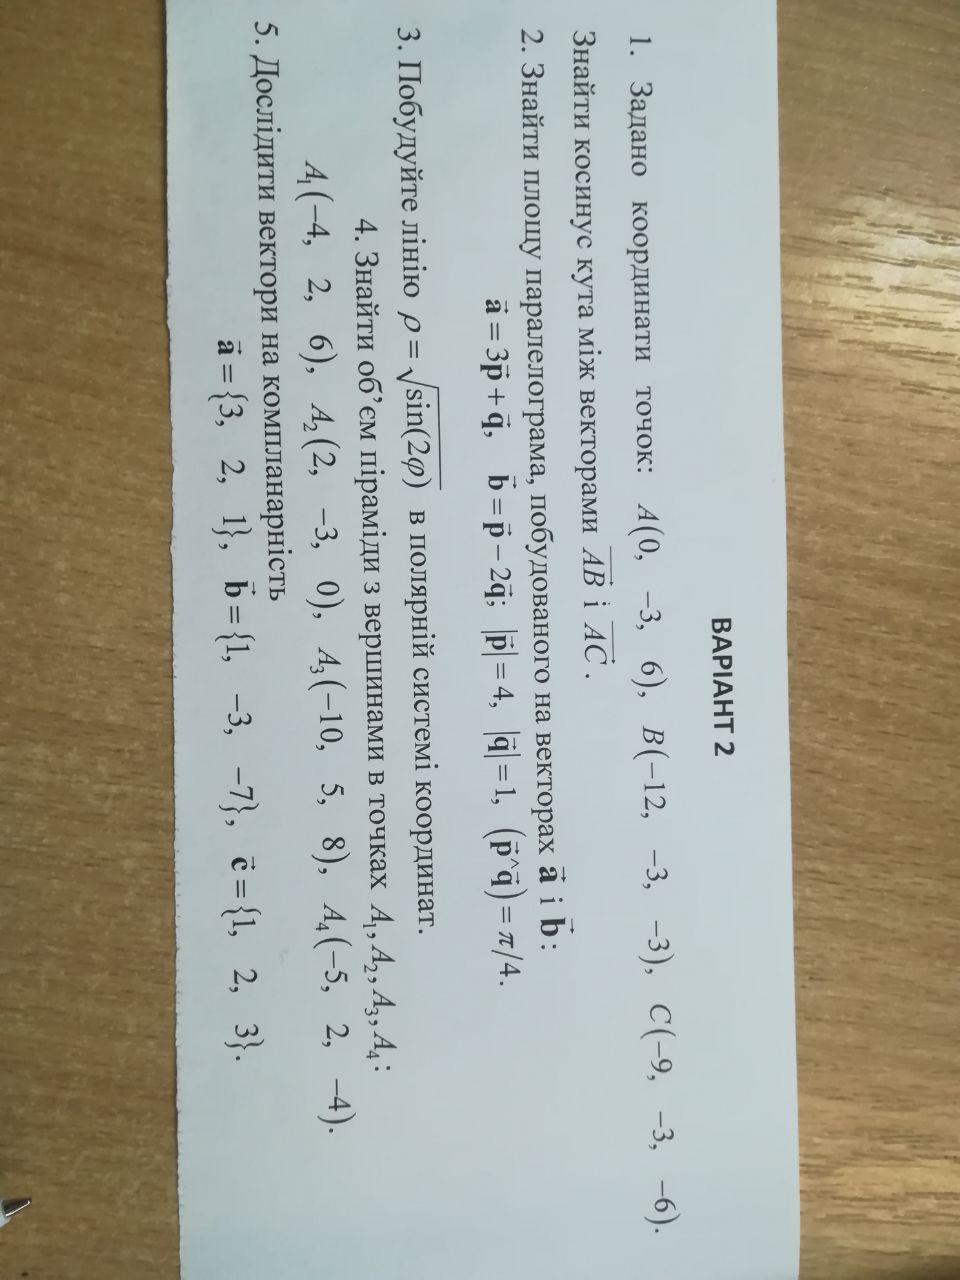 ВАРІАНТ 2
1. Задано координати точок: A(0, −3, 6), B(−12, −3, −3), C(−9, −3, −6).
Знайти косинус кута між векторами AB⃗ і AC⃗.
2. Знайти площу паралелограма, побудованого на векторах a⃗ і b⃗:
a⃗ = 3p⃗ + q⃗, b⃗ = p⃗ − 2q⃗; |p⃗| = 4, |q⃗| = 1, (p⃗^q⃗) = π/4.
3. Побудуйте лінію ρ = √sin(2φ) в полярній системі координат.
4. Знайти об’єм піраміди з вершинами в точках A₁, A₂, A₃, A₄:
A₁(−4, 2, 6), A₂(2, −3, 0), A₃(−10, 5, 8), A₄(−5, 2, −4).
5. Дослідити вектори на компланарність
a⃗ = {3, 2, 1}, b⃗ = {1, −3, −7}, c⃗ = {1, 2, 3}.